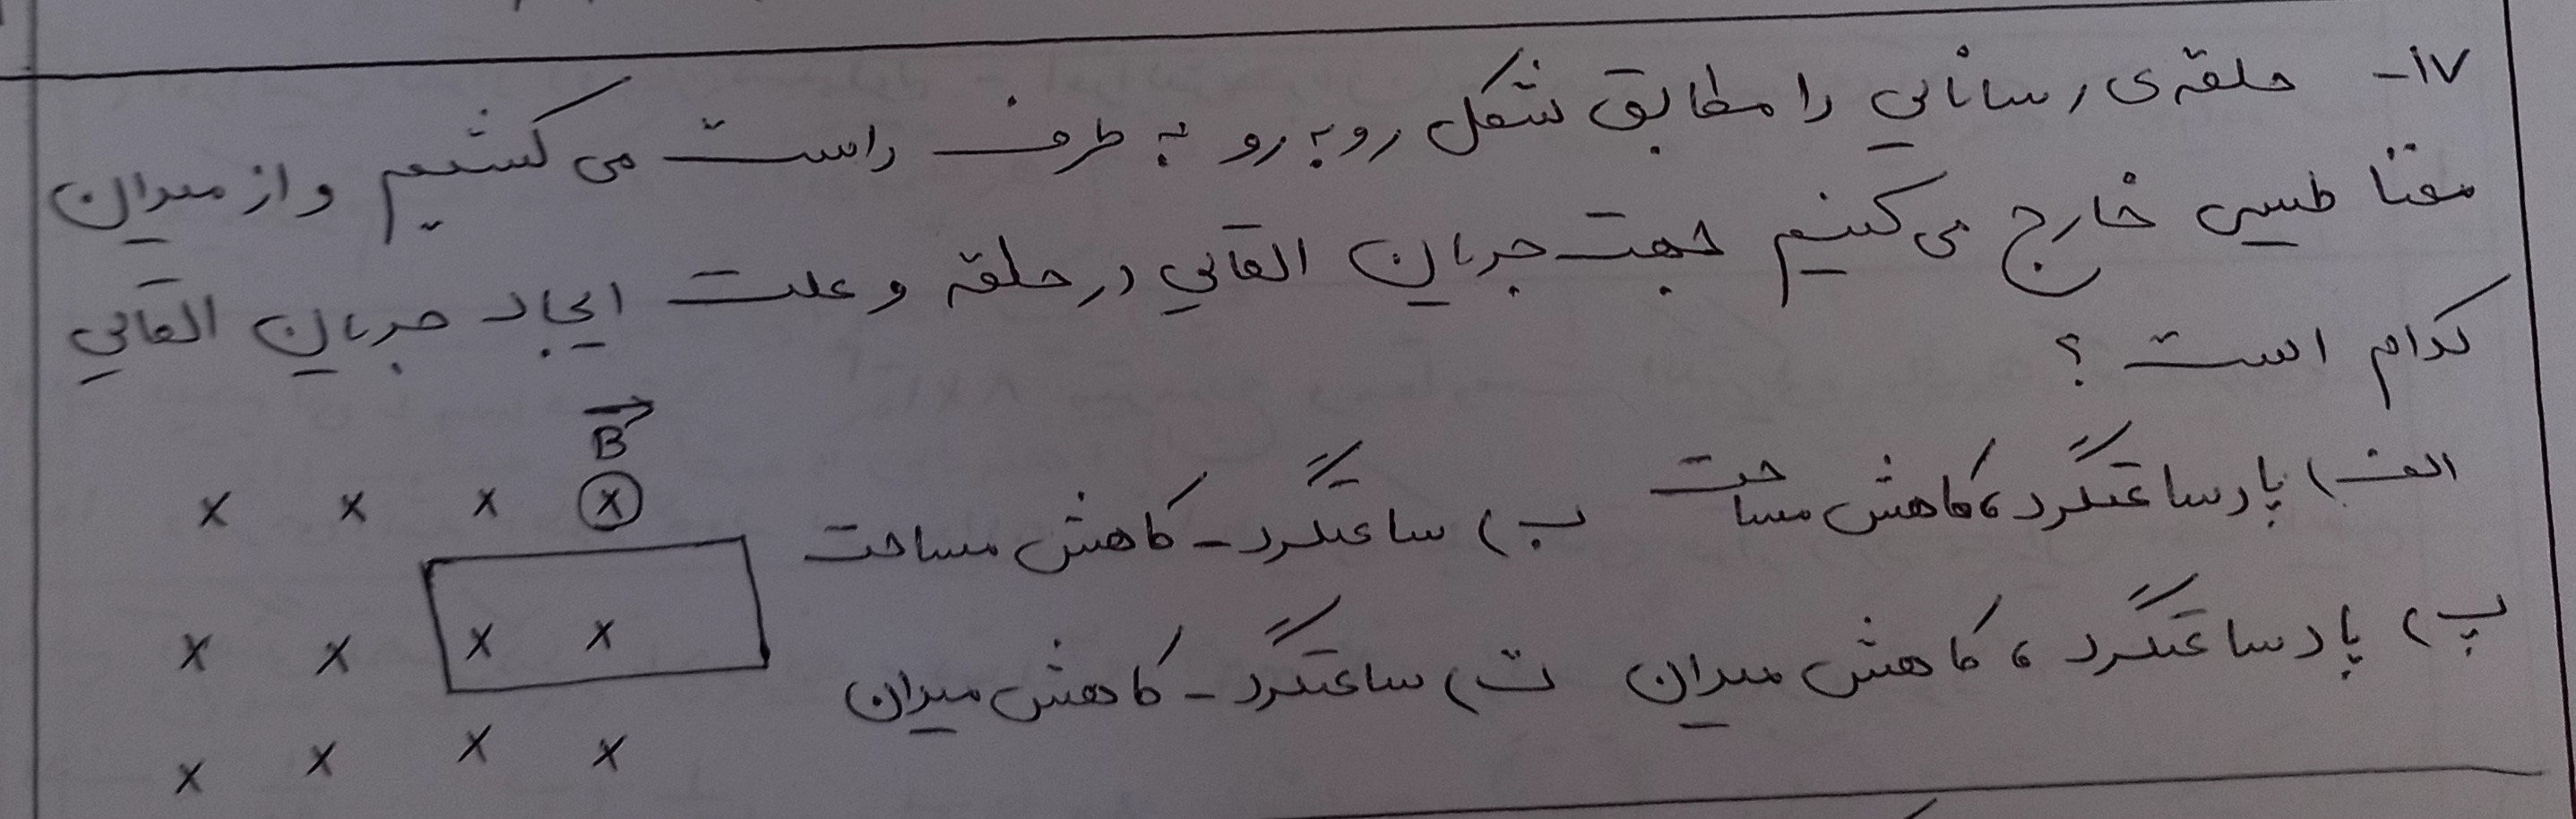 ۱۷- حلقه‌ی رسانایی را مطابق شکل روبه رو به طرف راست می کشیم و از میدان
مغناطیسی خارج می کنیم جهت جریان القایی در حلقه و علت ایجاد جریان القایی
کدام است ؟
الف) پادساعتگرد، کاهش مساحت ب) ساعتگرد - کاهش مساحت
پ) پادساعتگرد، کاهش میدان ت) ساعتگرد - کاهش میدان
B
x x x x
x x x x
x x x x